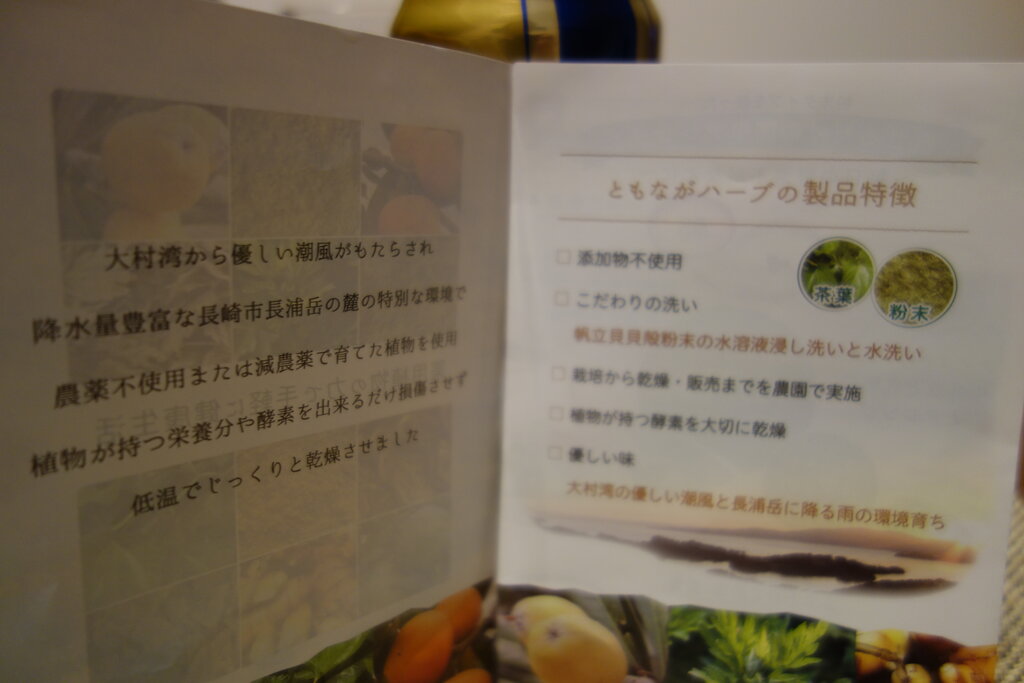 大村湾から優しい潮風がもたらされ
降水量豊富な長崎市長浦岳の麓の特別な環境で
農薬不使用または減農薬で育てた植物を使用
植物が持つ栄養分や酵素を出来るだけ損傷させず
低温でじっくりと乾燥させました
ともながハーブの製品特徴
□ 添加物不使用
□ こだわりの洗い
帆立貝貝殻粉末の水溶液浸し洗いと水洗い
□ 栽培から乾燥・販売までを農園で実施
□ 植物が持つ酵素を大切に乾燥
□ 優しい味
大村湾の優しい潮風と長浦岳に降る雨の環境育ち
茶葉
粉末